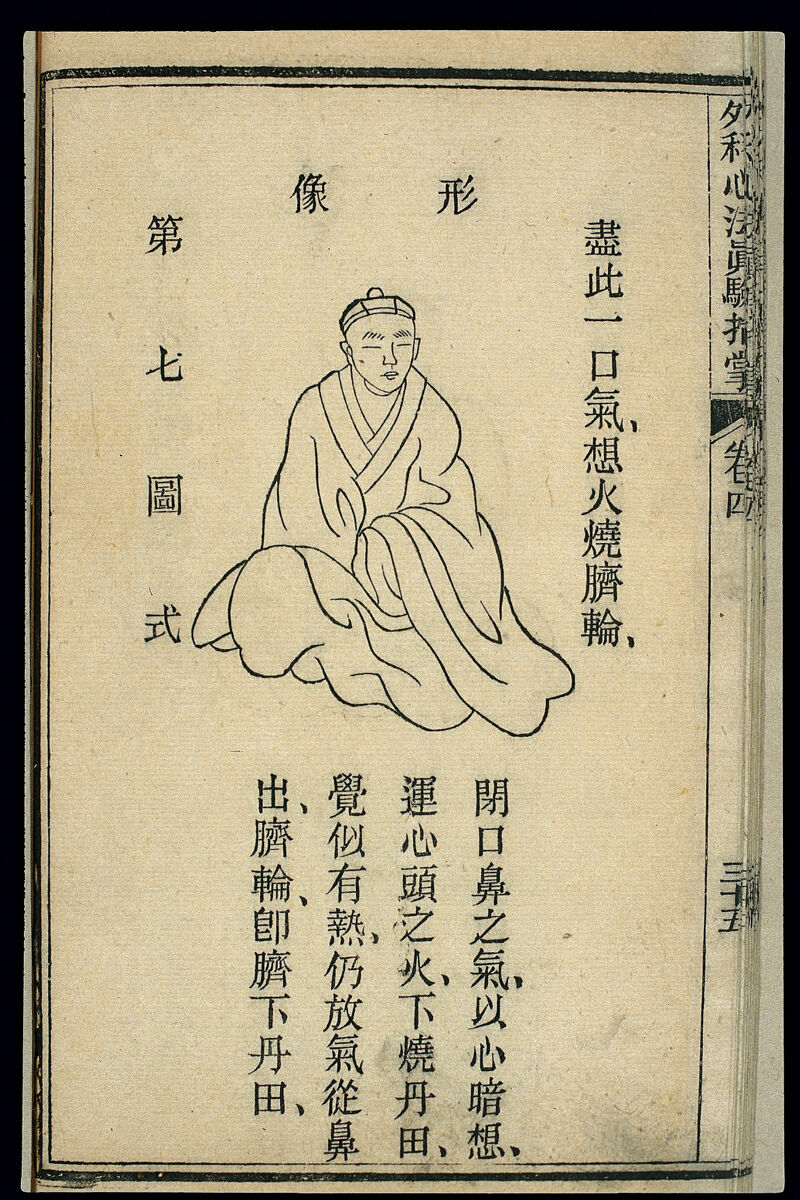 外科心法真驗指掌
卷四
三十五
形像
盡此一口氣、想火燒臍輪、
第七圖式
閉口鼻之氣、以心暗想、
運心頭之火、下燒丹田、
覺似有熱、仍放氣從鼻
出、臍輪、卽臍下丹田、